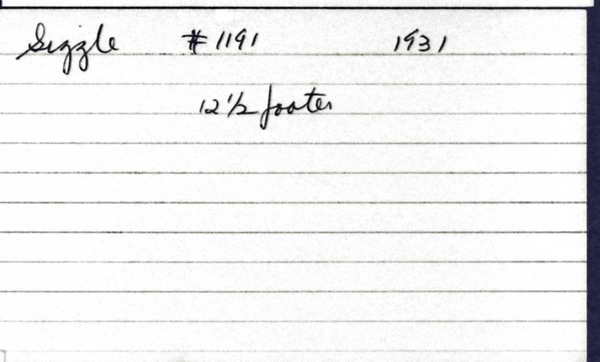 Sizzle #1191 1931
12 1/2 footer